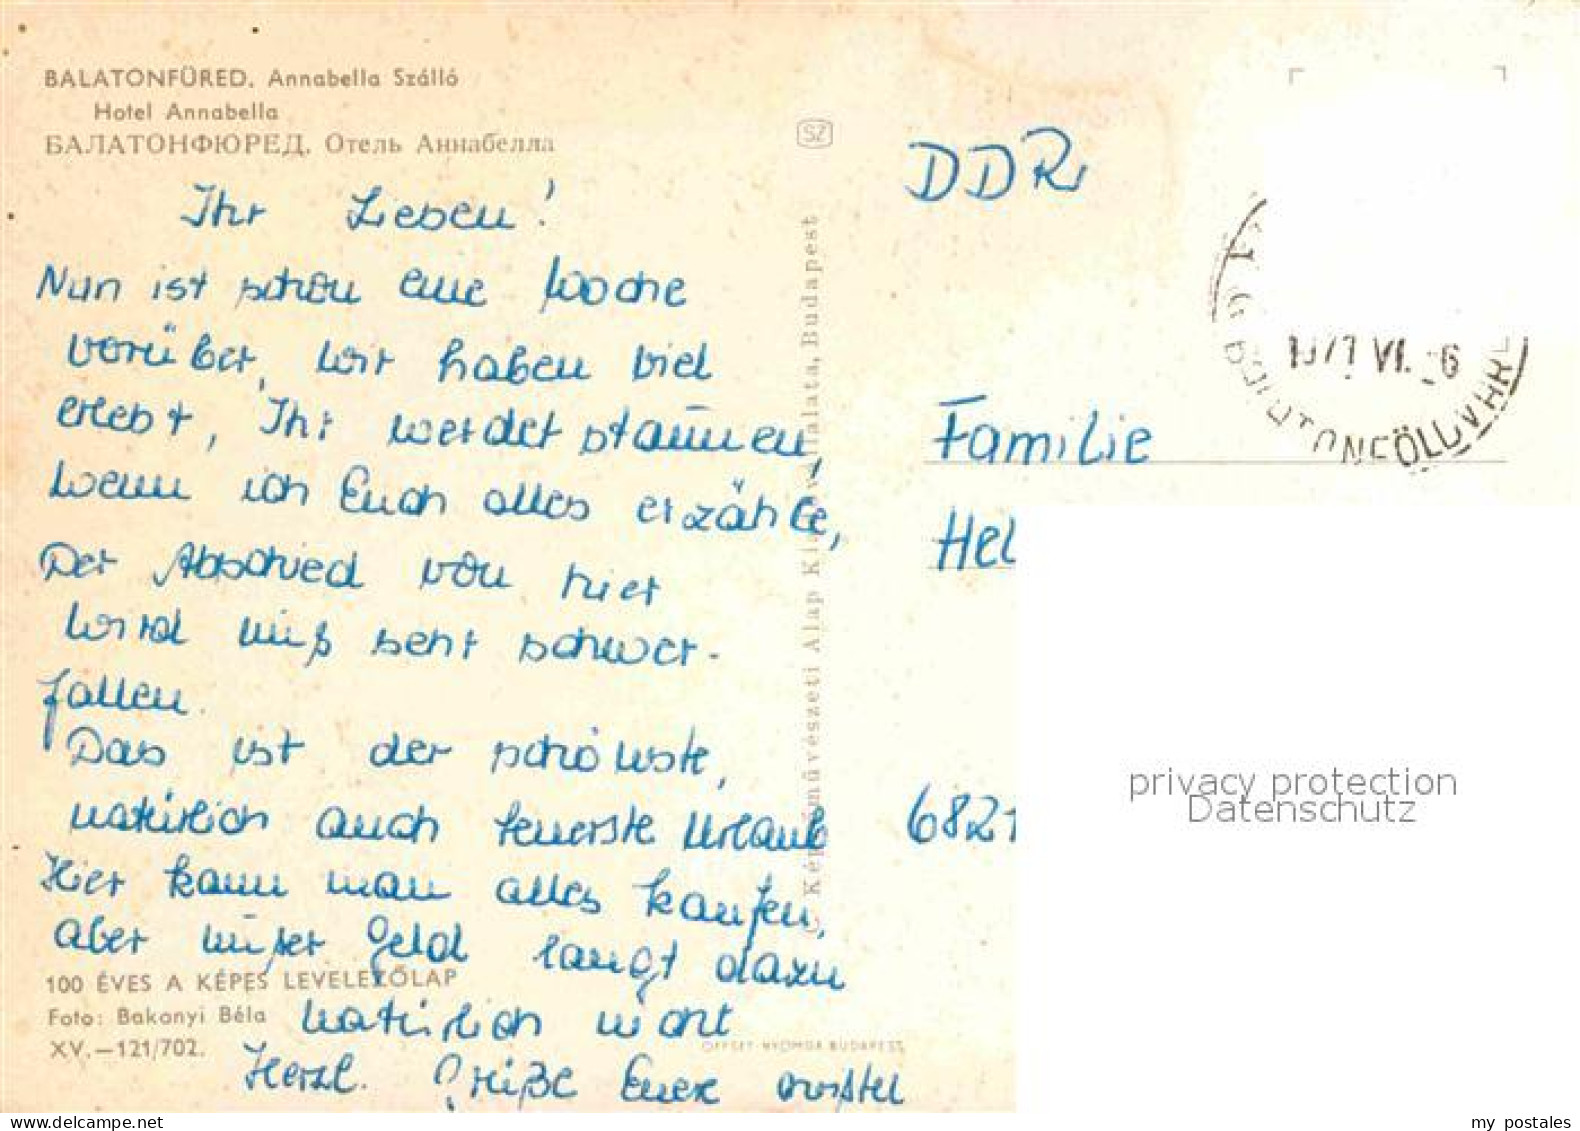 BALATONFÜRED. Annabella Szálló
Hotel Annabella
БАЛАТОНФЮРЕД. Отель Аннабелла
Ihr Lieben!
Nun ist schon eine Woche
vorüber, wir haben viel
erlebt, Ihr werdet staunen,
wenn ich Euch alles erzähle,
Der Abschied von hier
wird mir sehr schwer-
fallen.
Das ist der schönste,
natürlich auch teuerste Urlaub
Hier kann man alles kaufen,
aber unser Geld langt dazu
natürlich nicht
Herzl. Grüße Eure
100 ÉVES A KÉPES LEVELEZŐLAP
Foto: Bakonyi Béla
XV.—121/702.
SZ
Képzőművészeti Alap Kiadóvállalata, Budapest
OFFSET-NYOMDA BUDAPEST
DDR
Familie
Hel
6821
1971 VI. 6
BALATONFÖLDVÁR
privacy protection
Datenschutz
my postales